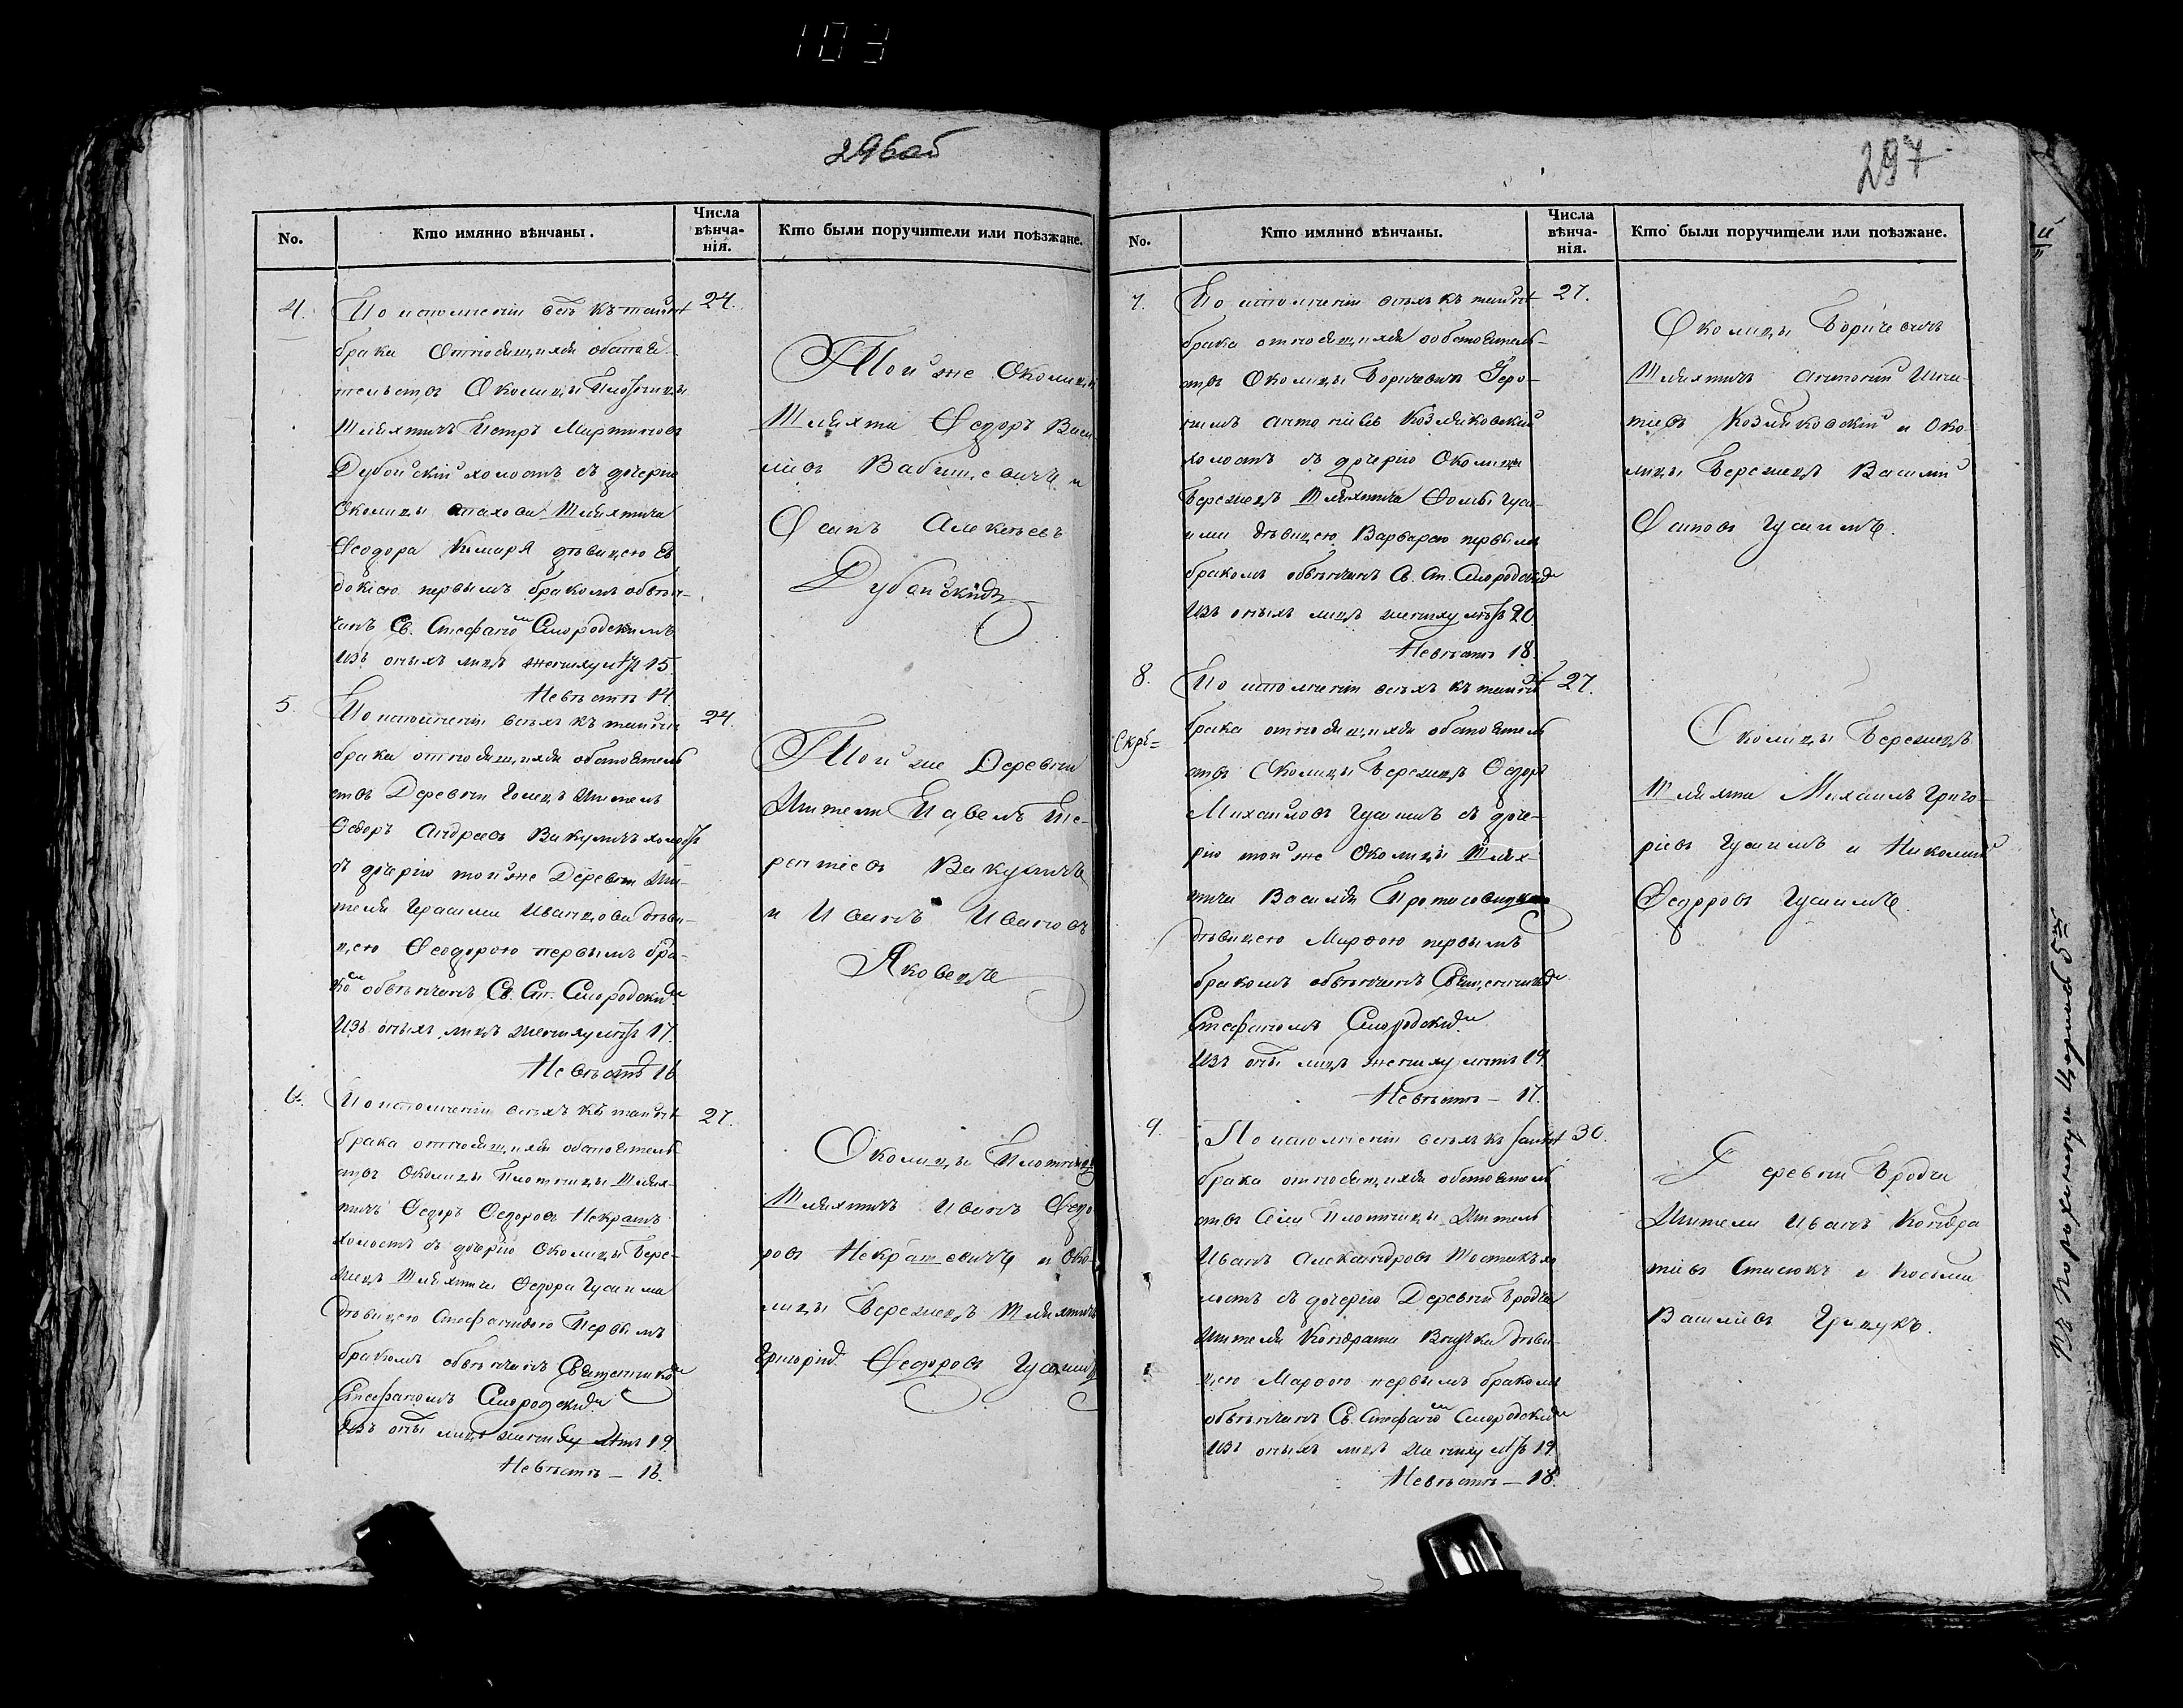 103
296об
No.
Кто имянно вѣнчаны.
Числа
вѣнча-
нія.
Кто были поручители или поѣзжане.
4.
По исполненіи всѣ къ тайнѣ
брака относящихся обстоя-
тельствъ Околицы Плотницы
Шляхтичъ Петръ Мартиновъ
Дубойскій холостъ съ дочерью
Околицы Стахова Шляхтича
Ѳеодора Комара дѣвицею Ев
докіею первымъ бракомъ обвѣн-
чанъ Св. Стефаномъ Смородскимъ
Изъ оныхъ лицъ жениху лѣтъ 15.
Невѣстѣ 14.
24.
Той же Околицы
Шляхта Ѳедоръ Васи
ліевъ Вабищевичъ и
Осипъ Алексѣевъ
Дубойскій
5.
По исполненіи всѣхъ къ тайнѣ
брака относящихся обстоятель
ствъ Деревни Голецъ Житель
Ѳедоръ Андреевъ Вакуличъ холостъ
съ дочерью той же Деревни Жи-
теля Герасима Иванцова дѣви-
цею Ѳеодорою первымъ бра-
комъ обвѣнчанъ Св. Ст. Смородскимъ
Изъ оныхъ лицъ жениху лѣтъ 17.
Невѣстѣ 16
24.
Той же Деревни
Жители Павелъ Те-
рентіевъ Вакуличъ
и Иванъ Ивановъ
Яковецъ
6.
По исполненіи всѣхъ къ тайнѣ
брака относящихся обстоятель-
ствъ Околицы Плотницы Шлях-
тичъ Ѳедоръ Ѳедоровъ Некрашъ
холостъ съ дочерью Околицы Бере-
жецъ Шляхтича Ѳедора Гусаима
дѣвицею Стефанидою Первымъ
бракомъ обвѣнчанъ Священникомъ
Стефаномъ Смородскимъ
Изъ оны лицъ жениху лѣтъ 19.
Невѣстѣ — 16.
27.
Околицы Плотницы
Шляхтичъ Иванъ Ѳедо
ровъ Некрашевичъ и Око
лицы Бережецъ Шляхтичъ
Григорій Ѳедоровъ Гусаимъ
297
No.
Кто имянно вѣнчаны.
Числа
вѣнча-
нія.
Кто были поручители или поѣзжане.
7.
По исполненіи всѣхъ къ тайнѣ
брака относящихся обстоятель-
ствъ Околицы Боричевичъ Iеро-
нимъ Антоніевъ Козляковскій
холостъ съ дочерью Околицы
Бережецъ Шляхтича Ѳомы Гуса-
има дѣвицею Варварою первымъ
бракомъ обвѣнчанъ С. Ст. Смородскимъ
Изъ оныхъ лицъ жениху лѣтъ 20.
Невѣстѣ 18.
27.
Околицы Боричевичъ
Шляхтичъ Антоній Игна-
тіевъ Козляковскій и Око-
лицы Бережецъ Василій
Осиповъ Гусаимъ.
8.
По исполненіи всѣхъ къ тайнѣ
брака относящихся обстоятель
ствъ Околицы Бережецъ Ѳедоръ
Михайловъ Гусаимъ съ доче-
рью той же Околицы Шлях-
тича Василія Протасовицкаго
дѣвицею Марѳою первымъ
бракомъ обвѣнчанъ Священникомъ
Стефаномъ Смородскимъ
Изъ оны лицъ жениху лѣтъ 19.
Невѣстѣ — 17.
27.
Скрѣ=
Околицы Бережецъ
Шляхта Михаилъ Григо-
ріевъ Гусаимъ и Николай
Ѳедоровъ Гусаимъ.
9.
По исполненіи всѣхъ къ тайнѣ
брака относящихся обстоятель
ствъ Села Плотницы Житель
Иванъ Александровъ Шостакъ хо
лостъ съ дочерью Деревни Бродча
Жителя Кондрата дѣви-
цею Марѳою первымъ бракомъ
обвѣнчанъ Св. Стефаномъ Смородскимъ
Изъ оныхъ лицъ жениху лѣтъ 19.
Невѣстѣ — 18.
30.
Деревни Бродча
Жители Иванъ Кондра
тіевъ Стасюкъ и Косьма
Василіевъ Грицукъ.